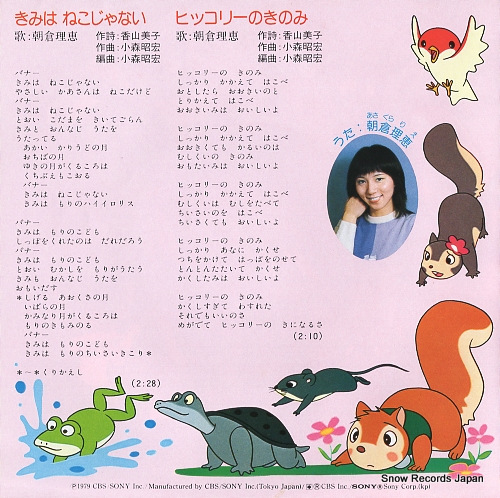 きみは ねこじゃない
歌:朝倉理恵
作詩:香山美子
作曲:小森昭宏
編曲:小森昭宏
バナー
きみは ねこじゃない
やさしい かあさんは ねこだけど
バナー
きみは ねこじゃない
とおい こだまを きいてごらん
きみと おんなじ うたを
うたってる
あかい かりうどの月
おちばの月
ゆきの月がくるころは
くちぶえもこおる
バナー
きみは ねこじゃない
きみは もりのハイイロリス
バナー
きみは もりのこども
しっぽをくれたのは だれだろう
バナー
きみは もりのこども
とおい むかしを もりがうたう
きみも おんなじ うたを
おもいだす
*しげる あおくさの月
いばらの月
かみなり月がくるころは
もりのきもみのる
バナー
きみは もりのこども
きみは もりのちいさいきこり*
*-*くりかえし
(2:28)
ヒッコリーのきのみ
歌:朝倉理恵
作詩:香山美子
作曲:小森昭宏
編曲:小森昭宏
ヒッコリーの きのみ
しっかり かかえて はこべ
おとしたら おおきいのと
とりかえて はこべ
おおきいみは おいしいよ
ヒッコリーの きのみ
しっかり かかえて はこべ
おおきくても かるいのは
むしくいの きのみ
おもたいみは おいしいよ
ヒッコリーの きのみ
しっかり かかえて はこべ
むしくいは むしをたべて
ちいさいのを はこべ
ちいさくても おいしいよ
ヒッコリーの きのみ
しっかり あなに かくせ
つちをかけて はっぱをのせて
とんとんたたいて かくせ
かくしたみは おいしいよ
ヒッコリーの きのみ
かくしすぎて わすれた
それでもいいのさ
めがでて ヒッコリーの きになるさ
(2:10)
うた:朝倉理恵
あさくらりえ
Ⓟ1979 CBS/SONY Inc./Manufactured by CBS/SONY Inc.(Tokyo Japan)/ CBS Inc./SONY® Sony Corp.(kp)
Snow Records Japan